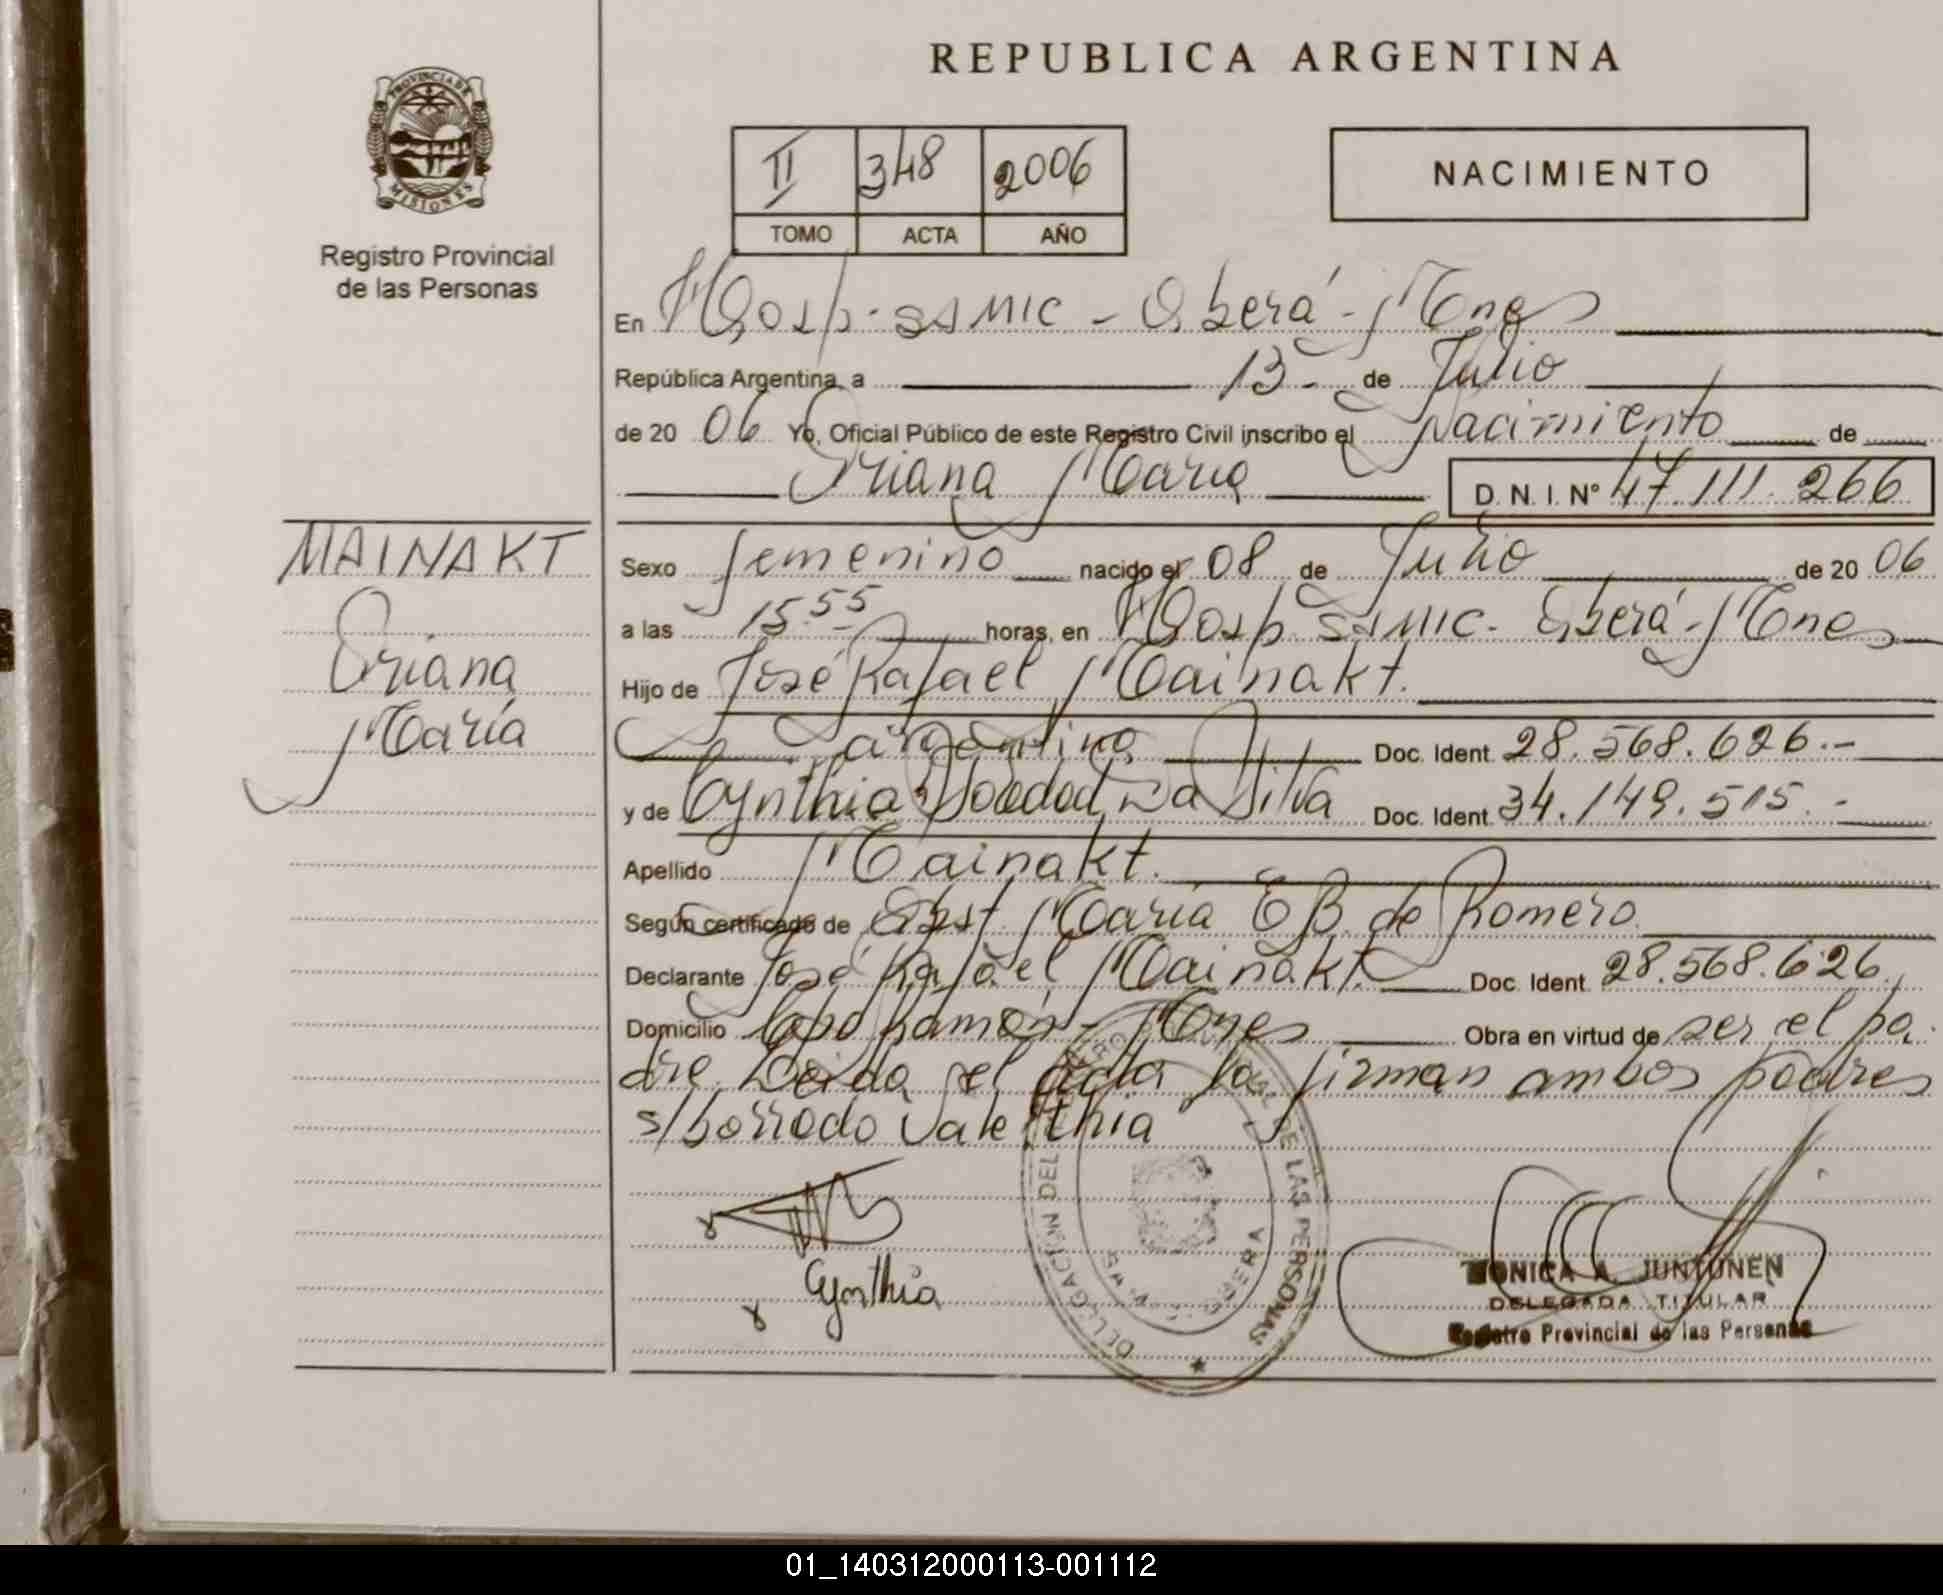 REPUBLICA ARGENTINA
PROVINCIA DE
MISIONES
Registro Provincial
de las Personas
II 348 2006
TOMO ACTA AÑO
NACIMIENTO
En Hosp. SSMIC - Oberá - Mnes
República Argentina, a 13 - de Julio
de 20 06 Yo, Oficial Público de este Registro Civil inscribo el Nacimiento de
Oriana María D. N. I. N° 47.111.266
MAINAKT
Oriana
María
Sexo femenino nacido el 08 de Julio de 20 06
a las 15.55 horas, en Hosp. SSMIC - Oberá - Mnes
Hijo de José Rafael Mainakt.
argentino Doc. Ident. 28.568.626.-
y de Cynthia Soledad Da Silva Doc. Ident. 34.149.515.-
Apellido Mainakt.
Según certificado de Obst. María E B. de Romero
Declarante José Rafael Mainakt. Doc. Ident. 28.568.626.
Domicilio Cpo Ramón - Mnes Obra en virtud de ser el pa-
dre Leída el acta la firman ambos padres
s/borrado Vale
Cynthia
DELEGACION DEL REGISTRO PROVINCIAL DE LAS PERSONAS
MONICA A. JUNTUNEN
DELEGADA TITULAR
Registro Provincial de las Personas
01_140312000113-001112